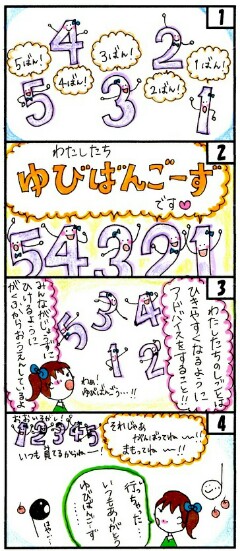 1
5ばん!
4ばん!
3ばん!
2ばん!
1ばん!
4
2
5
3
1
2
わたしたち
ゆびばんごーず
です♡
5 4 3 2 1
3
わたしたちのしごとは
ひきやすくなるように
アドバイスをすること!!
みんながじょうずに
ひけるように
がくふからおうえんしているよ
5 3 4
1 2
わぁ!
ゆびばんごう…!!
4
それじゃあ
がんばってね〜!!
まもってね〜!!
1 2 3 4 5
いつも見てるからね〜!
行っちゃった…
いつもありがとう
ゆびばんごーず
……